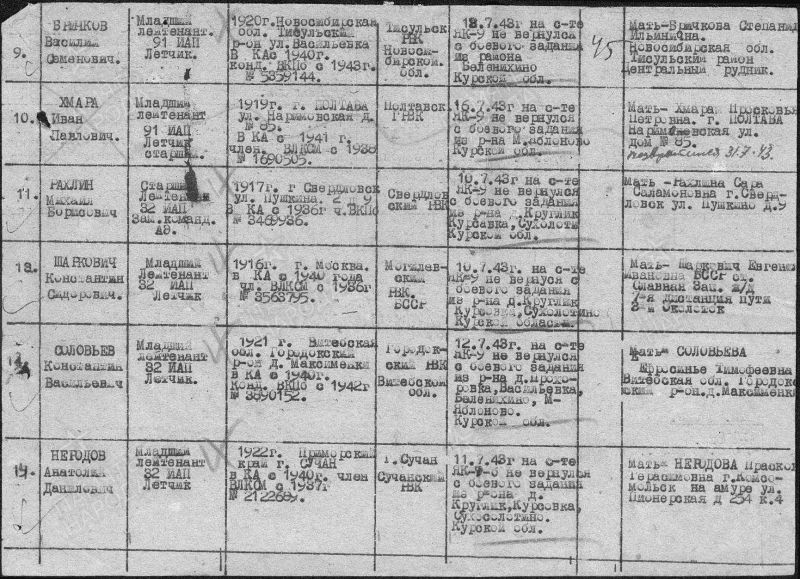 9.
БРИЧКОВ
Василий
Семенович.
Младший
лейтенант.
91 ИАП
Летчик.
1920г.Новосибирская
обл. Тисульский
р-он ул.Васильевка
В КАс 1940г.
конд. ВКПб с 1943г.
№ 5359144.
Тисульск
РВК
Новоси-
бирской.
обл.
12.7.43г на с-те
ЯК-9 не вернулся
с боевого задания
из района
Беленихино
Курской обл.
45
Мать-Бричкова Степанид
Ильинична.
Новосибирская обл.
Тисульский район
Центральный рудник.
10.
ХМАРА
Иван
Павлович.
Младший
лейтенант
91 ИАП
Летчик
старший.
1919г. г. ПОЛТАВА
ул. Наримовская д.
№ 85.
В КА с 1941 г.
член. ВЛКСМ с 1938
№ 1690505.
Полтавск
ГРВК
16.7.43г на с-те
ЯК-9 не вернулся
с боевого задания
из р-на М.яблоново
Курской обл.
Мать- Хмара Просковья
Петровна. г. ПОЛТАВА
Наримановская ул.
дом № 85.
возвратился 31.7.43.
11.
РАХЛИН
Михаил
Борисович
Старший
Лейтенант
32 ИАП
Зам.команд.
АЭ.
1917г. г Свердловск
ул. Пушкина. 2 д 9
В КА с 1936г ч.ВКПб
№ 3469936.
Свердлов
ский РВК
10.7.43г на с-те
ЯК-9 не вернулся
с боевого задания
из р-на д.Круглик
Курсавка,Сухолоти
Курской обл.
Мать -Рахлина Сара
Саламоновна г.Сверд-
ловск ул Пушкино д.9
ШАРКОВИЧ
Константин
Сидорович.
Младший
Лейтенант
32 ИАП
Летчик
1916г. г. Москва.
в КА с 1940 года
чл. ВЛКСМ с 1936г
№ 3563795.
Могилев-
ский
РВК.
БССР
10.7.43г. на с-те
ЯК-9 не вернуся с
боевого задания
из р-на д.Круглик
Курсовка,Сухолотино
Курской области.
Мать- Шаркович Евгени
Ивановна БССР ст.
Славная Зап. ж/д
7-я дистанция пути
2-й околоток
СОЛОВЬЕВ
Константин
Васильевич
Младший
Лейтенант
32 ИАП
Летчик.
1921 г. Витебская
обл. Городокский
р-он д. Максименки
В КА с 1940г.
Конд. ВКПб с 1942г
№ 3890152.
Городок-
ский РВК
Витебской
обл.
12.7.43г. на с-те
ЯК-9 не вернулся
с боевого задания
из р-на д.Прохо-
ровка,Васильевка,
Беленихино, М-
Яблоново.
Курской обл.
Мать- СОЛОВЬЕВА
Ефросинье Тимофеевна
Витебская обл. Городокс
кский р-он.д.Максименки
14.
НЕГОДОВ
Анатолий
Данилович
Младший
лейтенант
32 ИАП
Летчик
1922г. Приморский
край г. СУЧАН
в КА с 1940г. член
ВЛКСМ с 1937г
№ 2122689.
г.Сучан
Сучанский
РВК
11.7.43г на с-те
ЯК-7-б не вернулся
с боевого задания
из р-она д.
Круглик,Курсовка,
Сухосолотино.
Курской обл.
Мать- НЕГОДОВА Праско
Герасимовна г.Комсо-
мольск на амуре ул.
Пионерская д 254 к.4